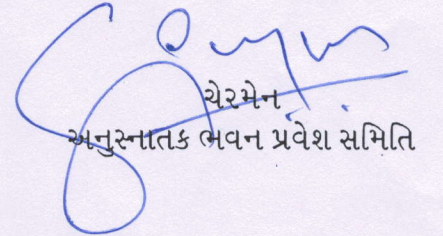 ચેરમેન
અનુસ્નાતક ભવન પ્રવેશ સમિતિ